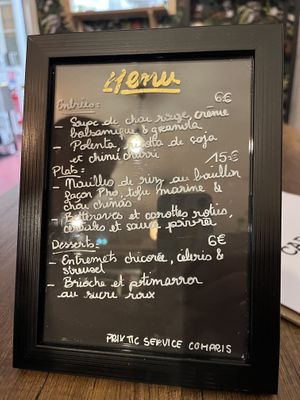 Menu
Entrées : 6€
- Soupe de chou rouge, crème
balsamique & granola
- Polenta, ricotta de soja
et chimi churri
Plats : 15€
- Nouilles de riz au bouillon
façon Pho, tofu mariné &
chou chinois
- Betteraves et carottes rôties,
céréales et sauce poivrée
Desserts : 6€
- Entremets chicorée, céleris &
streusel
- Brioche et potimarron
au sucre roux
PRIX TTC SERVICE COMPRIS